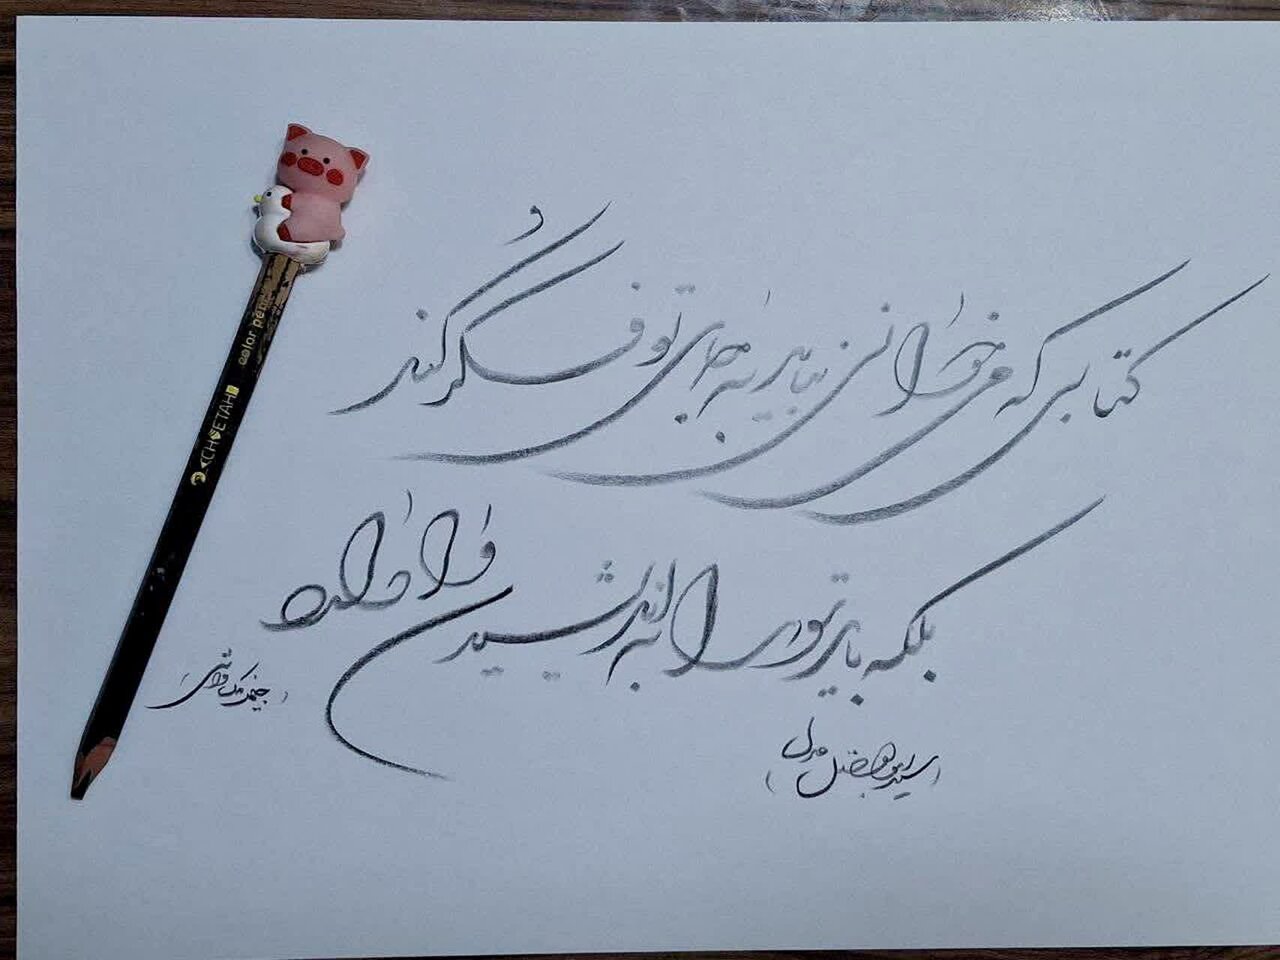 کتابی که می‌خوانی نباید به جای تو فکر کند
بلکه باید تو را به اندیشیدن وادارد
(جیمز مک کوش)
(سید ابوالفضل
color pencil
CHEETAH